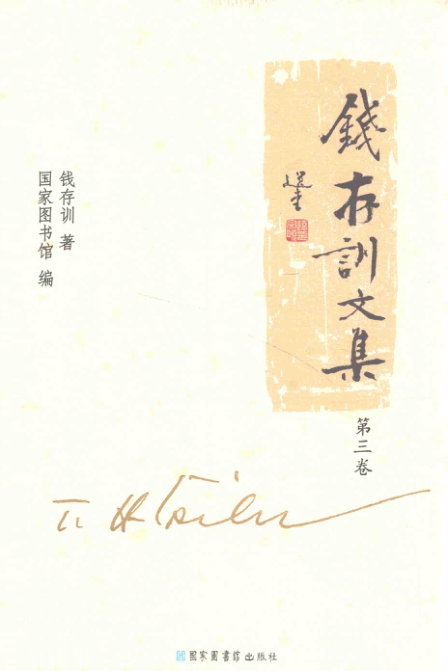 錢存訓文集
選堂
第三卷
钱存训 著
国家图书馆 编
T. H. Tsien
国家图书馆出版社